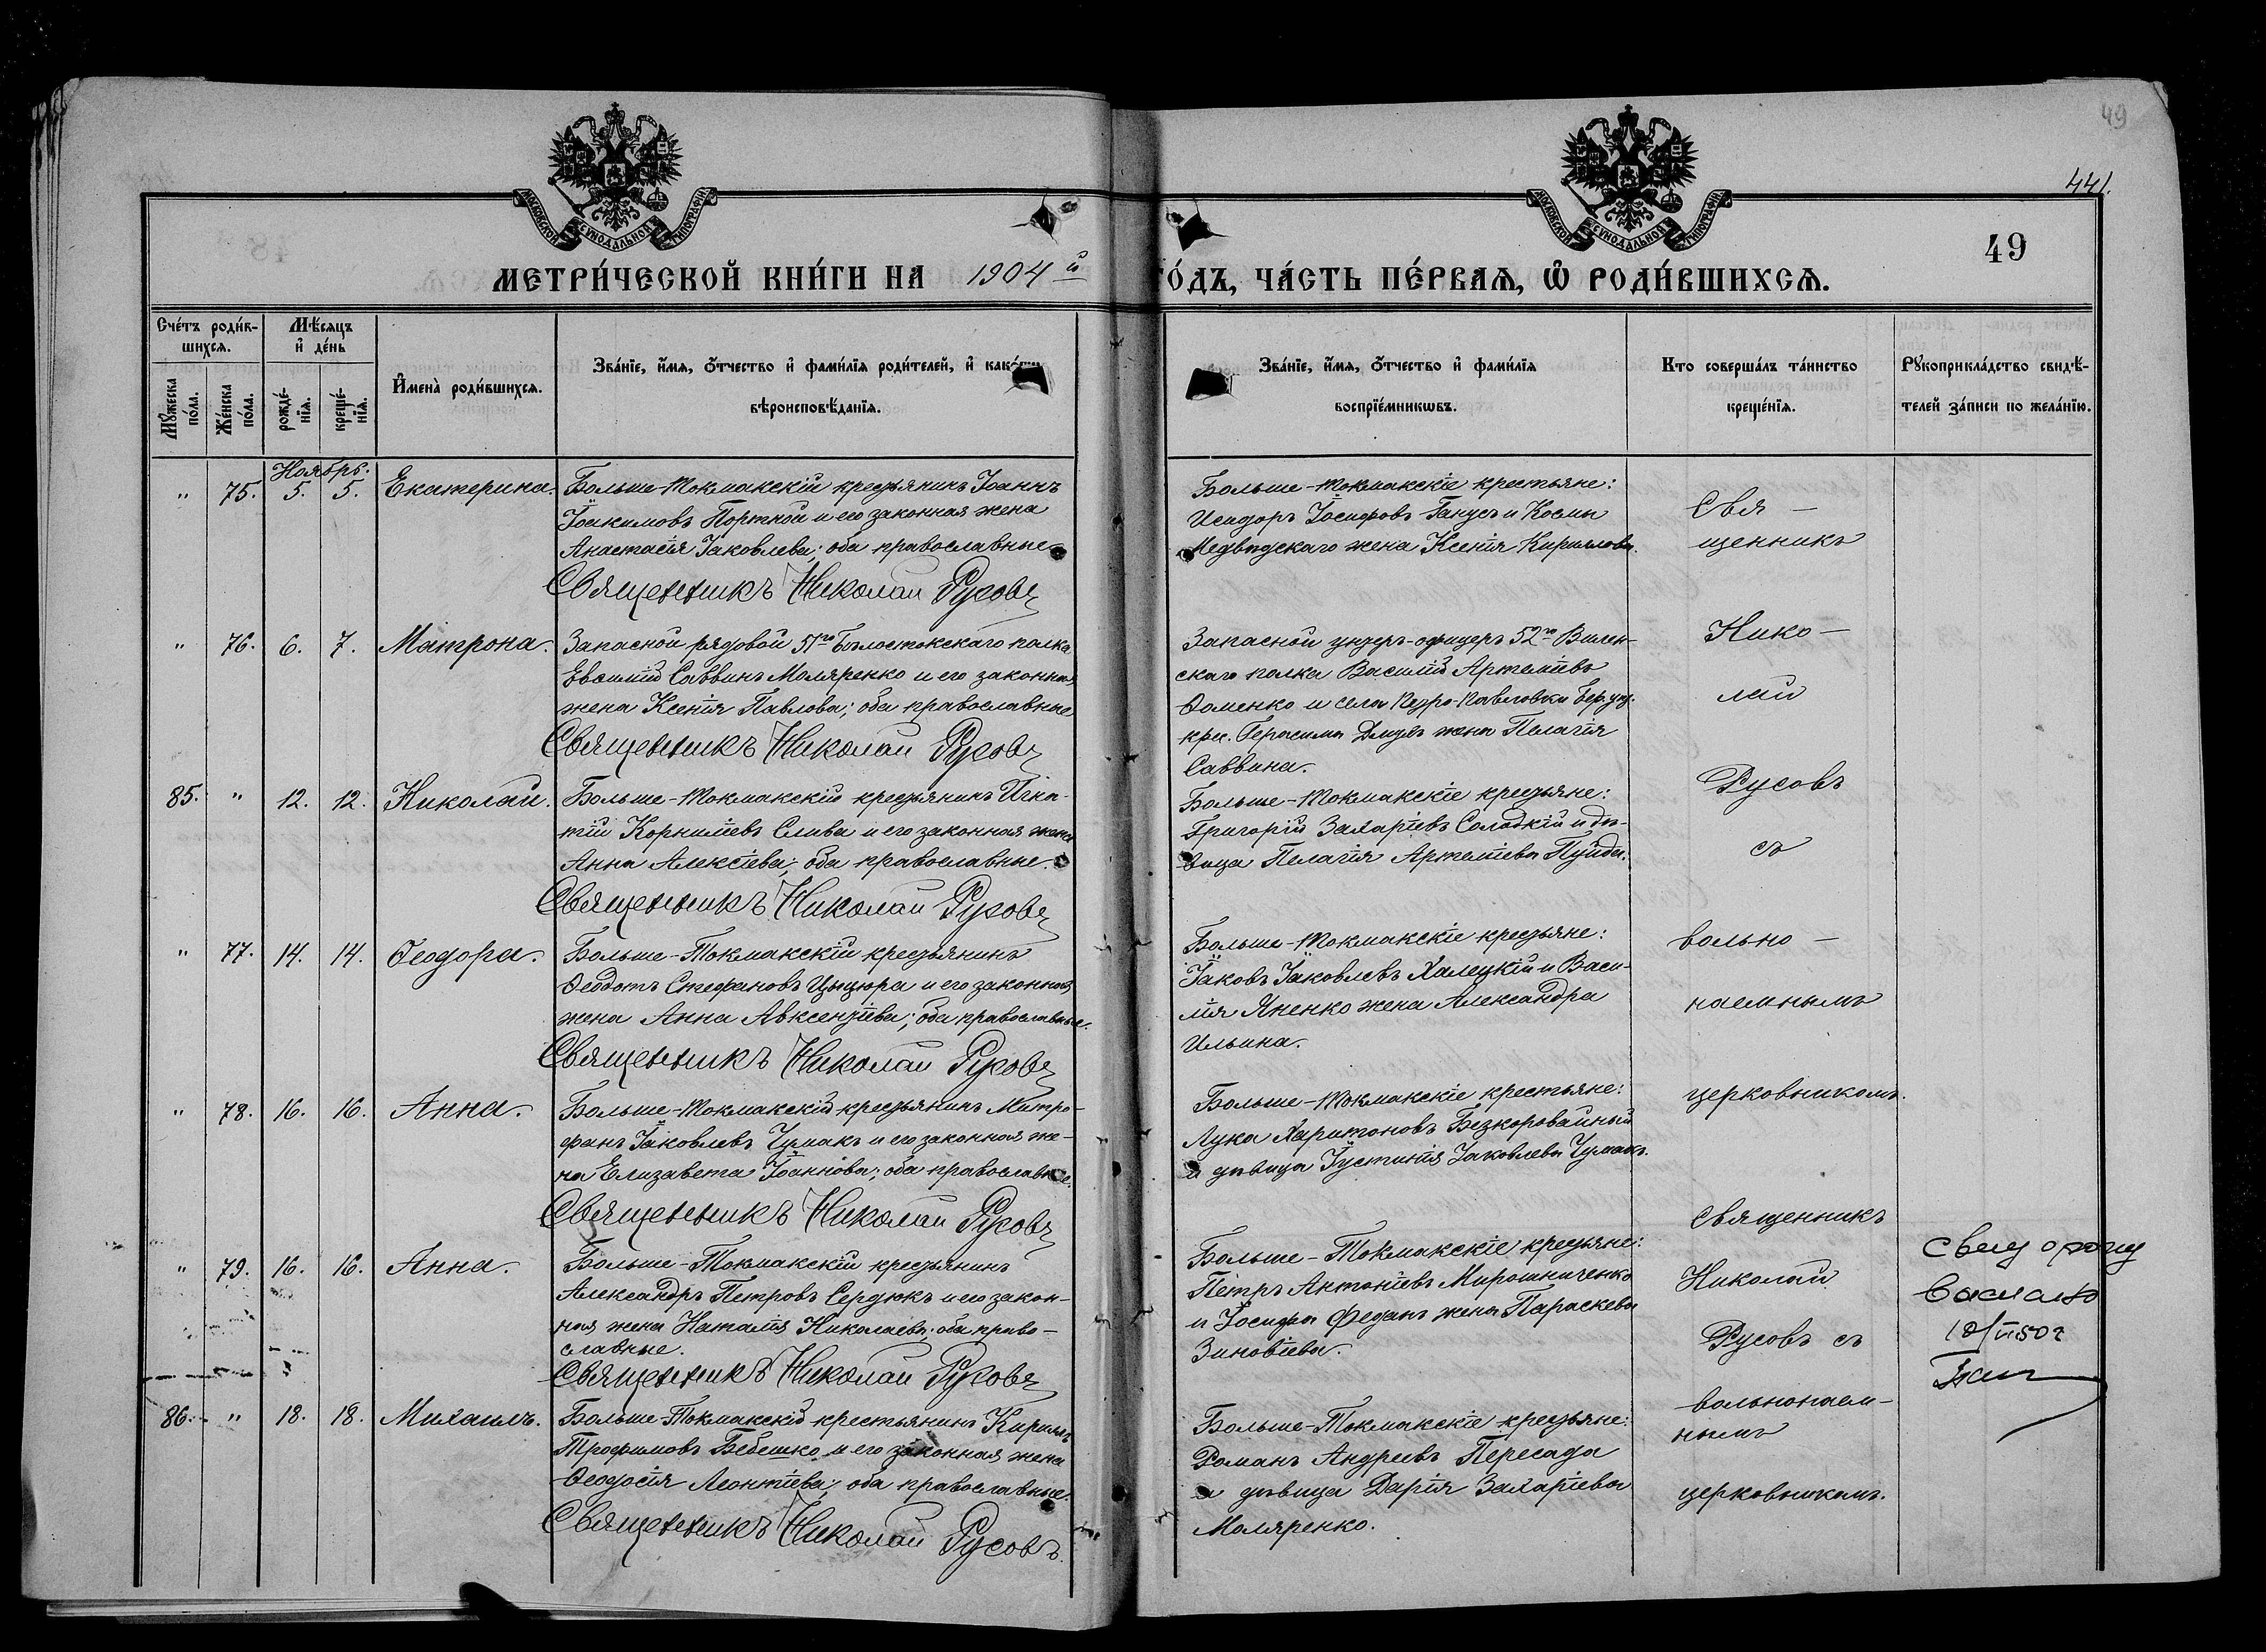 49
441.
МОСКОВСКОЙ СѴНОДАЛЬНОЙ ТИПОГРАФІИ
МОСКОВСКОЙ СѴНОДАЛЬНОЙ ТИПОГРАФІИ
49
МЕТРИ́ЧЕСКОЙ КНИ́ГИ НА 1904 й ГО́ДЪ, ЧА́СТЬ ПЕ́РВАѦ, Ѽ РОДИ́ВШИХСѦ.
Сче́тъ роди́вшихсѧ.
Мꙋ́жеска по́ла.
Же́нска по́ла.
Мѣ́сѧцъ и҆ де́нь
рожде́нїѧ.
креще́нїѧ.
И҆мена̀ роди́вшихсѧ.
Зва́нїе, и҆́мѧ, ѻ҆́тчество и҆ фами́лїѧ роди́телей, и҆ како́гѡ
вѣроисповѣ́данїѧ.
Зва́нїе, и҆́мѧ, ѻ҆́тчество и҆ фами́лїѧ
воспрїе́мникѡвъ.
Кто соверша́лъ та́инство
креще́нїѧ.
Рꙋкоприкла́дство свидѣ́-
телей за́писи по жела́нїю.
Ноябрь.
" 75. 5. 5. Екатерина.
Больше-Токмакскій крестьянинъ Іоаннъ
Іоакимовъ Портной и его законная жена
Анастасія Іаковлева; оба православные
Священникъ Николай Русовъ
Больше-Токмакскіе крестьяне:
Исидоръ Іосифовъ Ганусъ и Космы
Медвѣдскаго жена Ксенія Кириллова.
Свя-
щенникъ
" 76. 6. 7. Матрона.
Запасной рядовой 51го Бѣлостокскаго полка
Евсимій Саввинъ Моляренко и его законная
жена Ксенія Павлова; оба православные
Священникъ Николай Русовъ
Запасной унтеръ-офицеръ 52го Вилен-
скаго полка Василій Артеміевъ
Ѳоменко и села Петро-Павловки Бер. уѣз.
крес. Герасима жена Пелагія
Саввина.
Нико-
лай
85. " 12. 12. Николай.
Больше-Токмакскій крестьянинъ Игна-
тій Корниліевъ Слива и его законная жена
Анна Алексіева; оба православные.
Священникъ Николай Русовъ
Больше-Токмакскіе крестьяне:
Григорій Захаріевъ Солодкій и дѣ-
вица Пелагія Артеміева Пуйда.
Русовъ
съ
" 77. 14. 14. Ѳеодора.
Больше-Токмакскій крестьянинъ
Ѳеодотъ Стефановъ Цыцюра и его законная
жена Анна Авксентіева; оба православные.
Священникъ Николай Русовъ
Больше-Токмакскіе крестьяне:
Іаковъ Іаковлевъ Халецкій и Васи-
лія Яненко жена Александра
Ильина.
вольно-
наемнымъ
" 78. 16. 16. Анна.
Больше-Токмакскій крестьянинъ Митро-
фанъ Іаковлевъ Чумакъ и его законная же-
на Елизавета Іоаннова; оба православные.
Священникъ Николай Русовъ
Больше-Токмакскіе крестьяне:
Лука Харитоновъ Безкоровайный
и дѣвица Іустинія Іаковлева Чумакъ.
церковникомъ.
" 79. 16. 16. Анна.
Больше-Токмакскій крестьянинъ
Александръ Петровъ Сердюкъ и его закон-
ная жена Наталія Николаева; оба право-
славные.
Священникъ Николай Русовъ
Больше-Токмакскіе крестьяне:
Петръ Антоніевъ Мирошниченко
и Іосифа Феданъ жена Параскева
Зиновіева.
Священникъ
Николай
Русовъ съ
86. " 18. 18. Михаилъ.
Больше-Токмакскій крестьянинъ Кириллъ
Трофимовъ Бебешко и его законная жена
Ѳеодосія Леонтіева; оба православные.
Священникъ Николай Русовъ.
Больше-Токмакскіе крестьяне:
Романъ Андреевъ Пересада
и дѣвица Дарія Захаріева
Моляренко.
вольнонаем-
нымъ
церковникомъ.